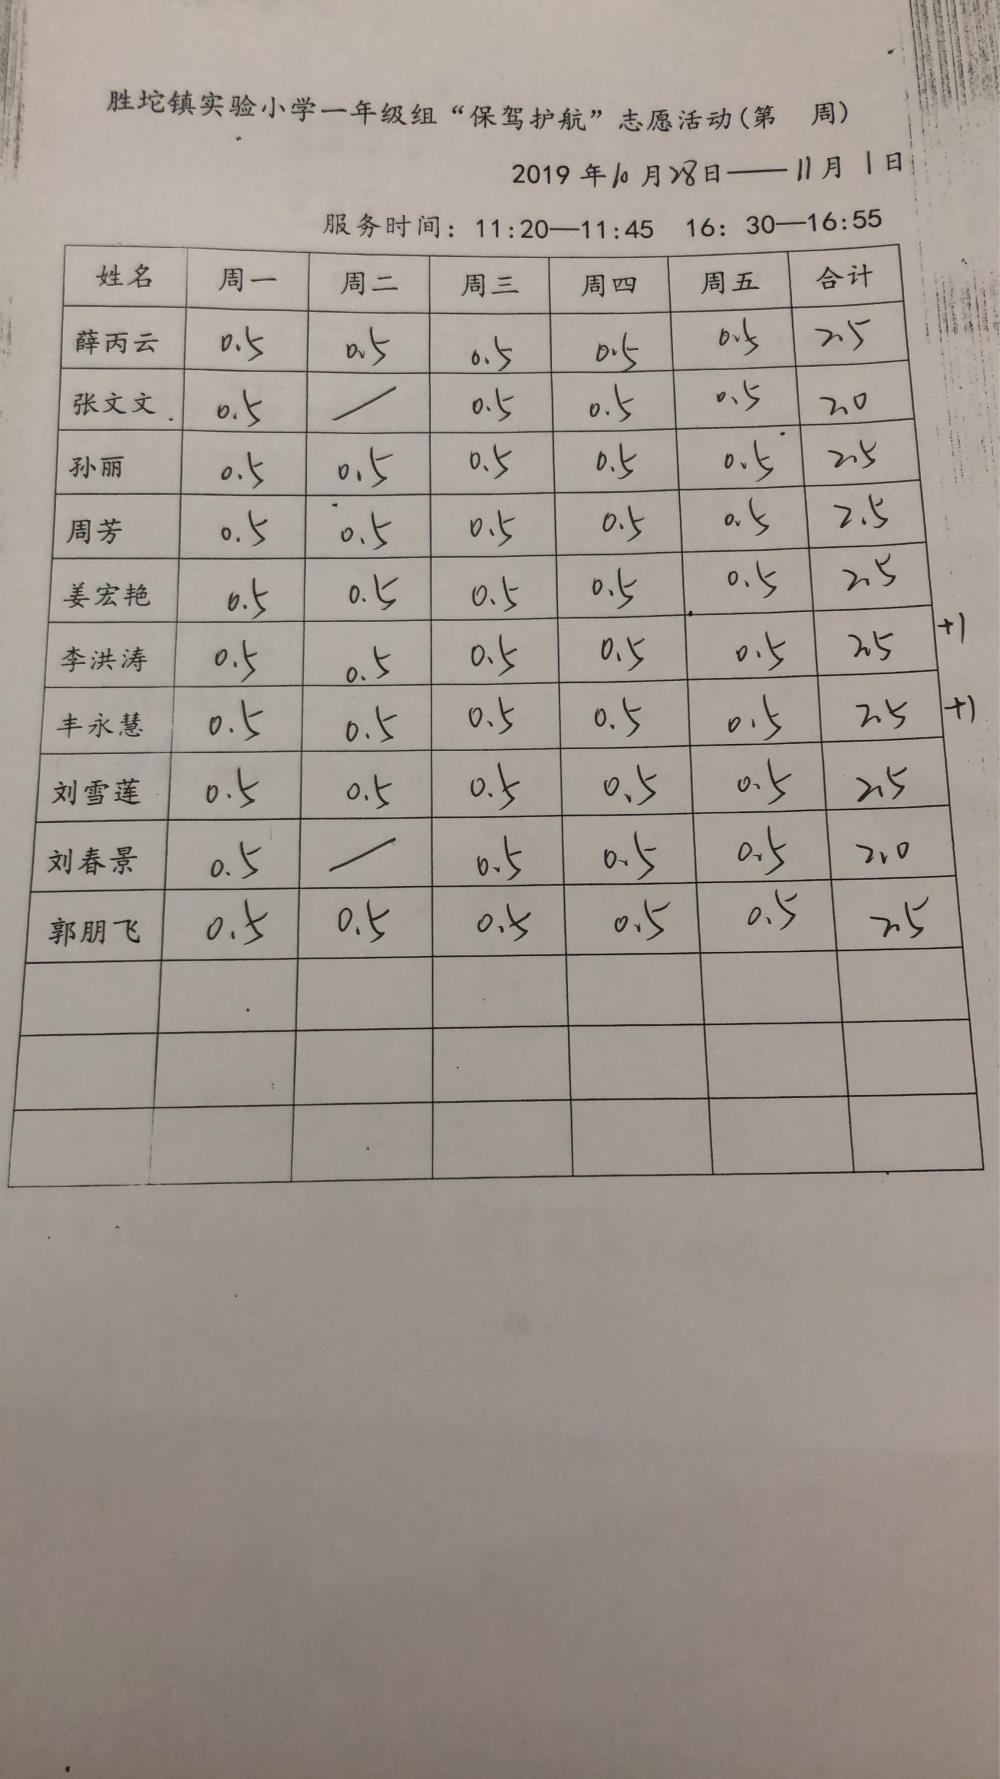 胜坨镇实验小学一年级组“保驾护航”志愿活动(第 周)
2019 年10月28日——11月 1日
服务时间: 11:20—11:45 16: 30—16:55
姓名 周一 周二 周三 周四 周五 合计
薛丙云 0.5 0.5 0.5 0.5 0.5 2.5
张文文 0.5 / 0.5 0.5 0.5 2.0
孙丽 0.5 0.5 0.5 0.5 0.5 2.5
周芳 0.5 0.5 0.5 0.5 0.5 2.5
姜宏艳 0.5 0.5 0.5 0.5 0.5 2.5
李洪涛 0.5 0.5 0.5 0.5 0.5 2.5 +1
丰永慧 0.5 0.5 0.5 0.5 0.5 2.5 +1
刘雪莲 0.5 0.5 0.5 0.5 0.5 2.5
刘春景 0.5 / 0.5 0.5 0.5 2.0
郭朋飞 0.5 0.5 0.5 0.5 0.5 2.5